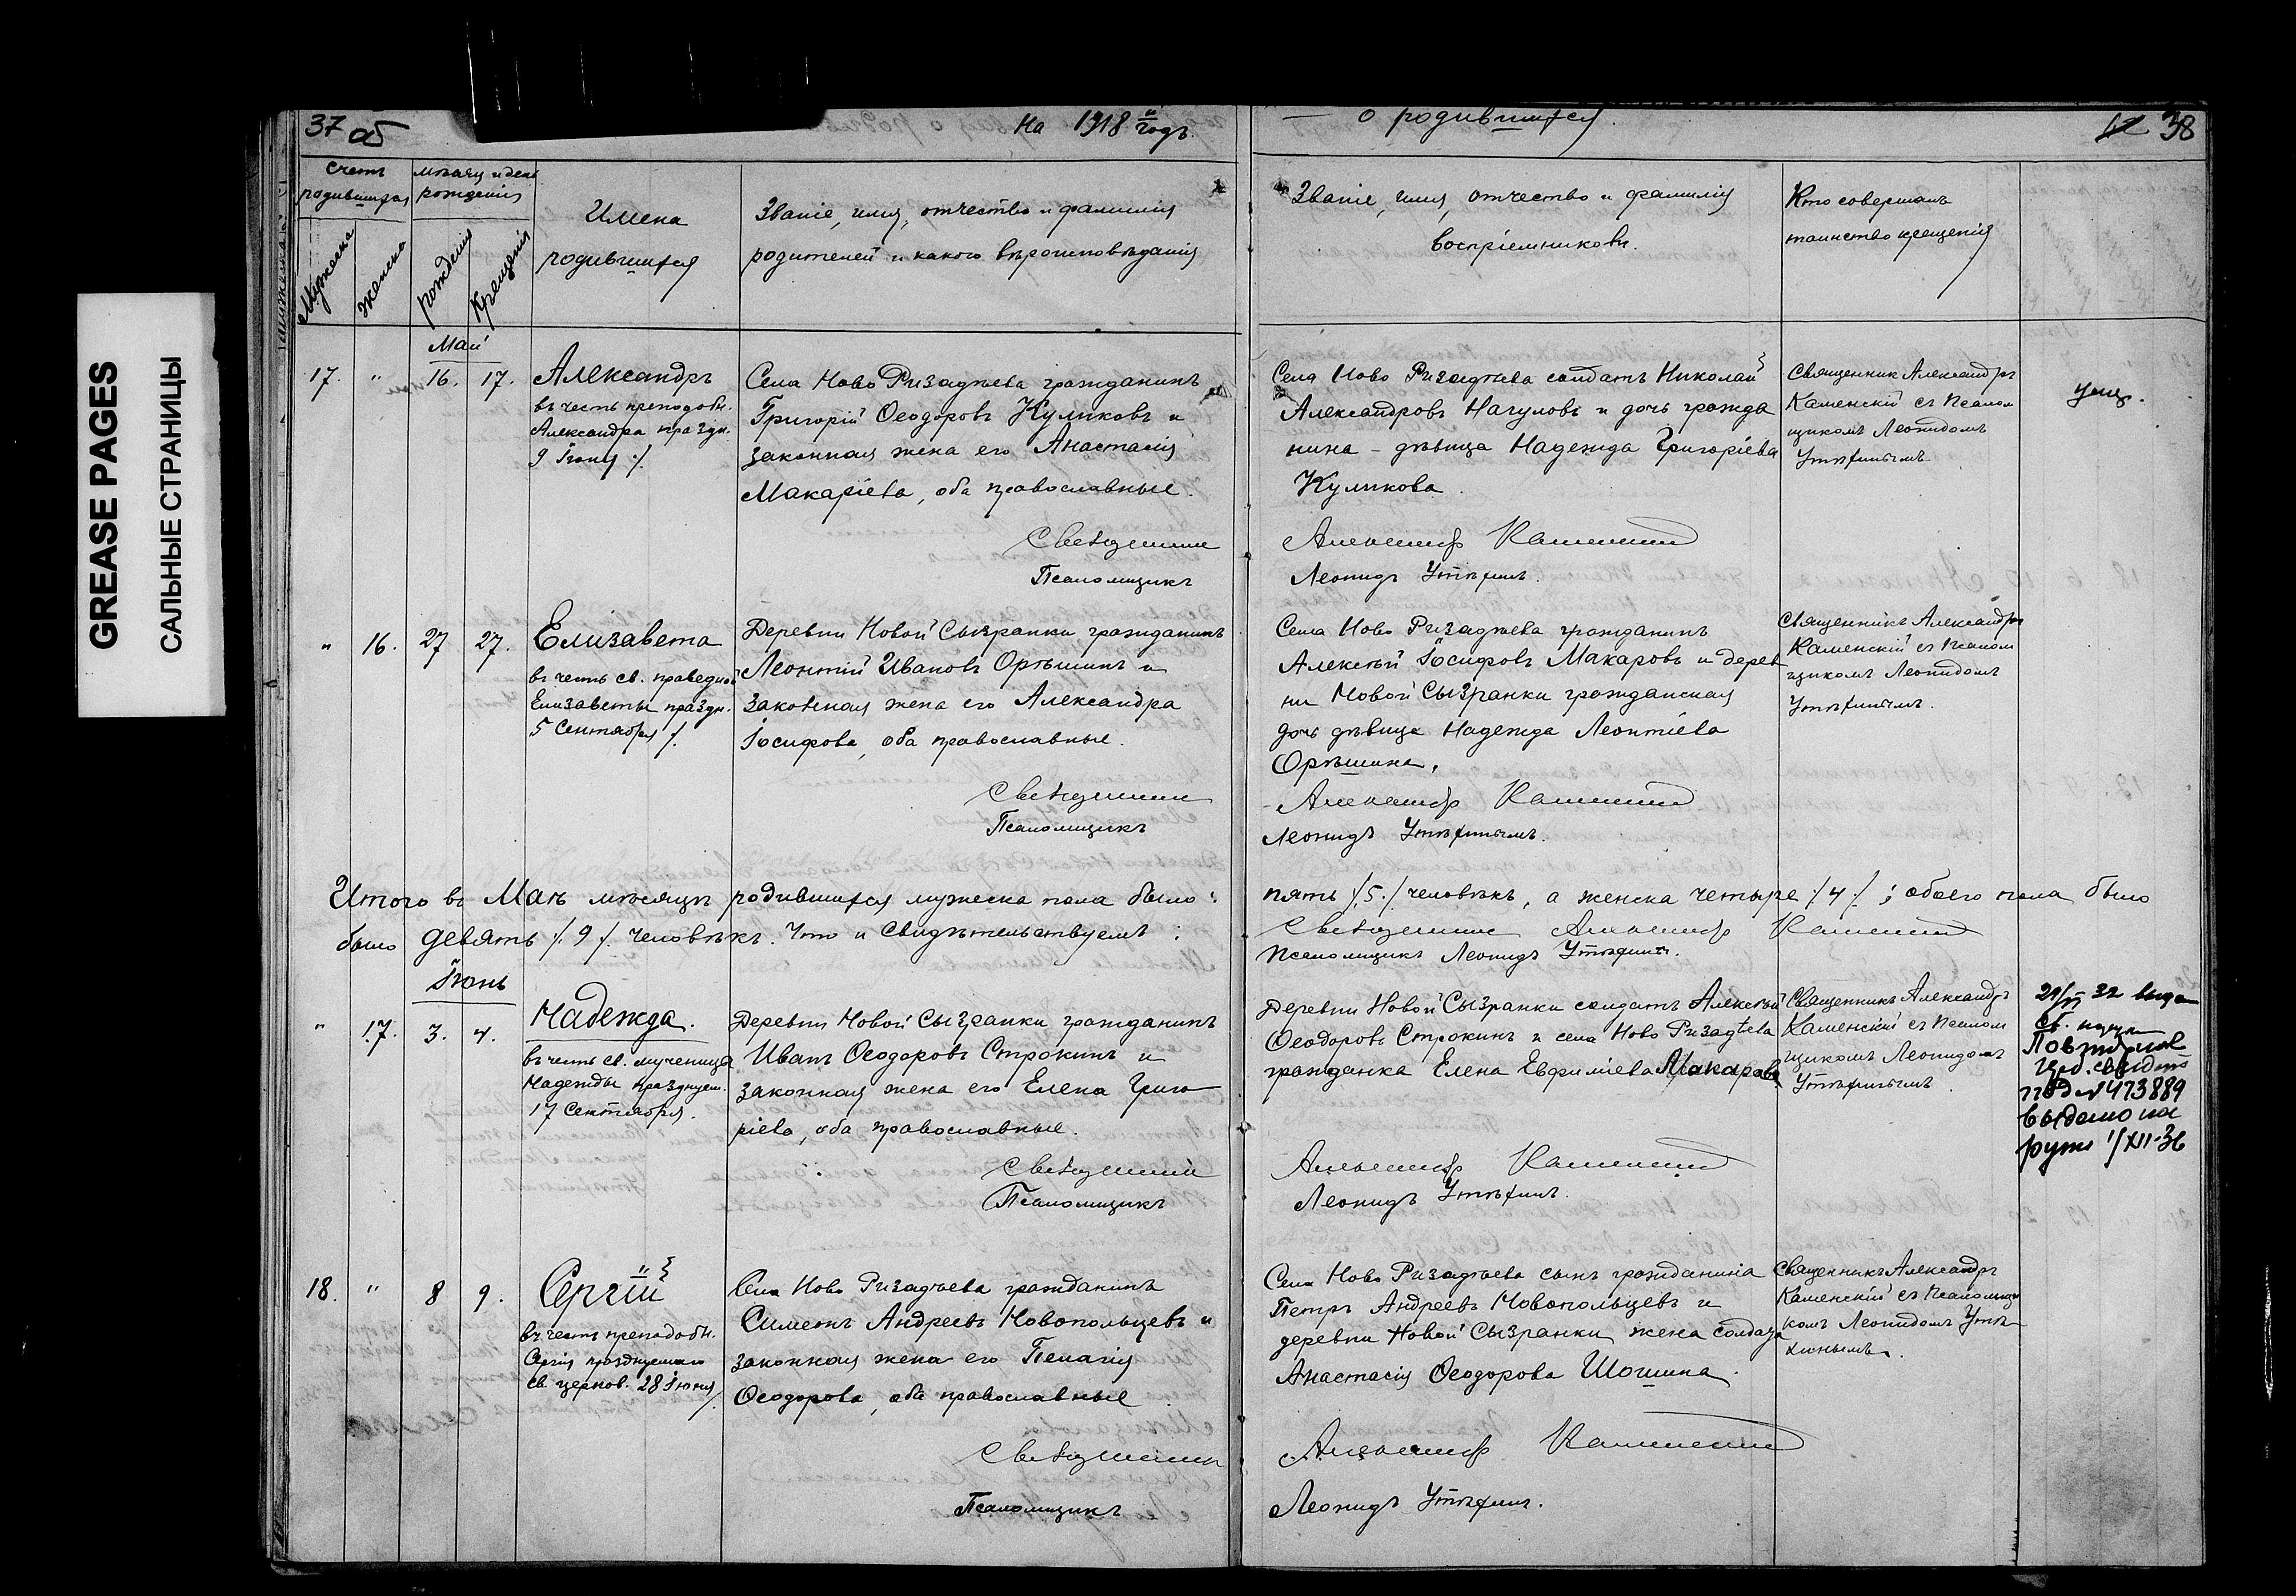 GREASE PAGES
САЛЬНЫЕ СТРАНИЦЫ
37 об
На 1918 й годъ.
Счетъ родившихся
мѣсяцъ и день рожденія
Мужеска
женска
рожденія
Крещенія
Имена
родившихся
Званіе, имя, отчество и фамилія
родителей и какого вѣроисповѣданія
Май
17. " 16. 17.
Александръ
въ честь преподобн.
Александра праздн.
9 Іюня /.
Села Ново Ризадѣева гражданинъ
Григорій Ѳеодоровъ Куликовъ и
законная жена его Анастасія
Макаріева, оба православные.
Священникъ
Псаломщикъ
" 16. 27 27.
Елизавета
въ честь св. праведной
Елизаветы праздн.
5 Сентября /.
Деревни Новой Сызранки гражданинъ
Леонтій Ивановъ Орѣшинъ и
законная жена его Александра
Іосифова, оба православные.
Священникъ
Псаломщикъ
Итого въ Маѣ мѣсяцѣ родившихся мужеска пола было:
было девять /. 9 /. человѣкъ. Что и свидѣтельствуемъ:
Іюнь
" 17. 3. 4.
Надежда.
въ честь св. мученицы
Надежды празднуем.
17 Сентября.
Деревни Новой Сызранки гражданинъ
Иванъ Ѳеодоровъ Строкинъ и
законная жена его Елена Григо
ріева, оба православные.
Священникъ
Псаломщикъ
18. " 8 9.
Сергій
въ честь преподобн.
Сергія празднуемаго
св. церков. 28 Іюня /.
Села Ново Ризадѣева гражданинъ
Симеонъ Андреевъ Новопольцевъ и
законная жена его Пелагія
Ѳеодорова, оба православные
Священникъ
Псаломщикъ
о родившихся.
38
Званіе, имя, отчество и фамилія
воспріемниковъ.
Кто совершалъ
таинство крещенія
Села Ново Ризадѣева солдатъ Николай
Александровъ Начуловъ и дочь гражда
нина - дѣвица Надежда Григоріева
Куликова.
Александръ Каменскій
Леонидъ Утѣхинъ.
Священник Александръ
Каменскій съ Псалом
щикомъ Леонидомъ
Утѣхинымъ
Села Ново Ризадѣева гражданинъ
Алексѣй Іосифовъ Макаровъ и дерев
ни Новой Сызранки гражданская
дочь дѣвица Надежда Леонтіева
Орѣшина.
Александръ Каменскій
Леонидъ Утѣхинымъ.
Священникъ Александръ
Каменскій съ Псалом
щикомъ Леонидомъ
Утѣхинымъ.
пять /. 5. / человѣкъ, а женска четыре /. 4 /. ; обоего пола было
Священникъ Александръ Каменскій
Псаломщикъ Леонидъ Утѣхинъ.
Деревни Новой Сызранки солдатъ Алексѣй
Ѳеодоровъ Строкинъ и села Ново Ризадѣева
гражданка Елена Евфиміева Макарова
Александръ Каменскій
Леонидъ Утѣхинъ.
Священникъ Александръ
Каменскій съ Псалом
щикомъ Леонидомъ
Утѣхинымъ.
32 выдан
под № 473889
выдано на
руки 1/XII-36
Села Ново Ризадѣева сынъ гражданина
Петръ Андреевъ Новопольцевъ и
деревни Новой Сызранки жена солдата
Анастасія Ѳеодорова Шошина.
Александръ Каменскій
Леонидъ Утѣхинъ.
Священникъ Александръ
Каменскій съ Псаломщи
комъ Леонидомъ Утѣ
хинымъ.